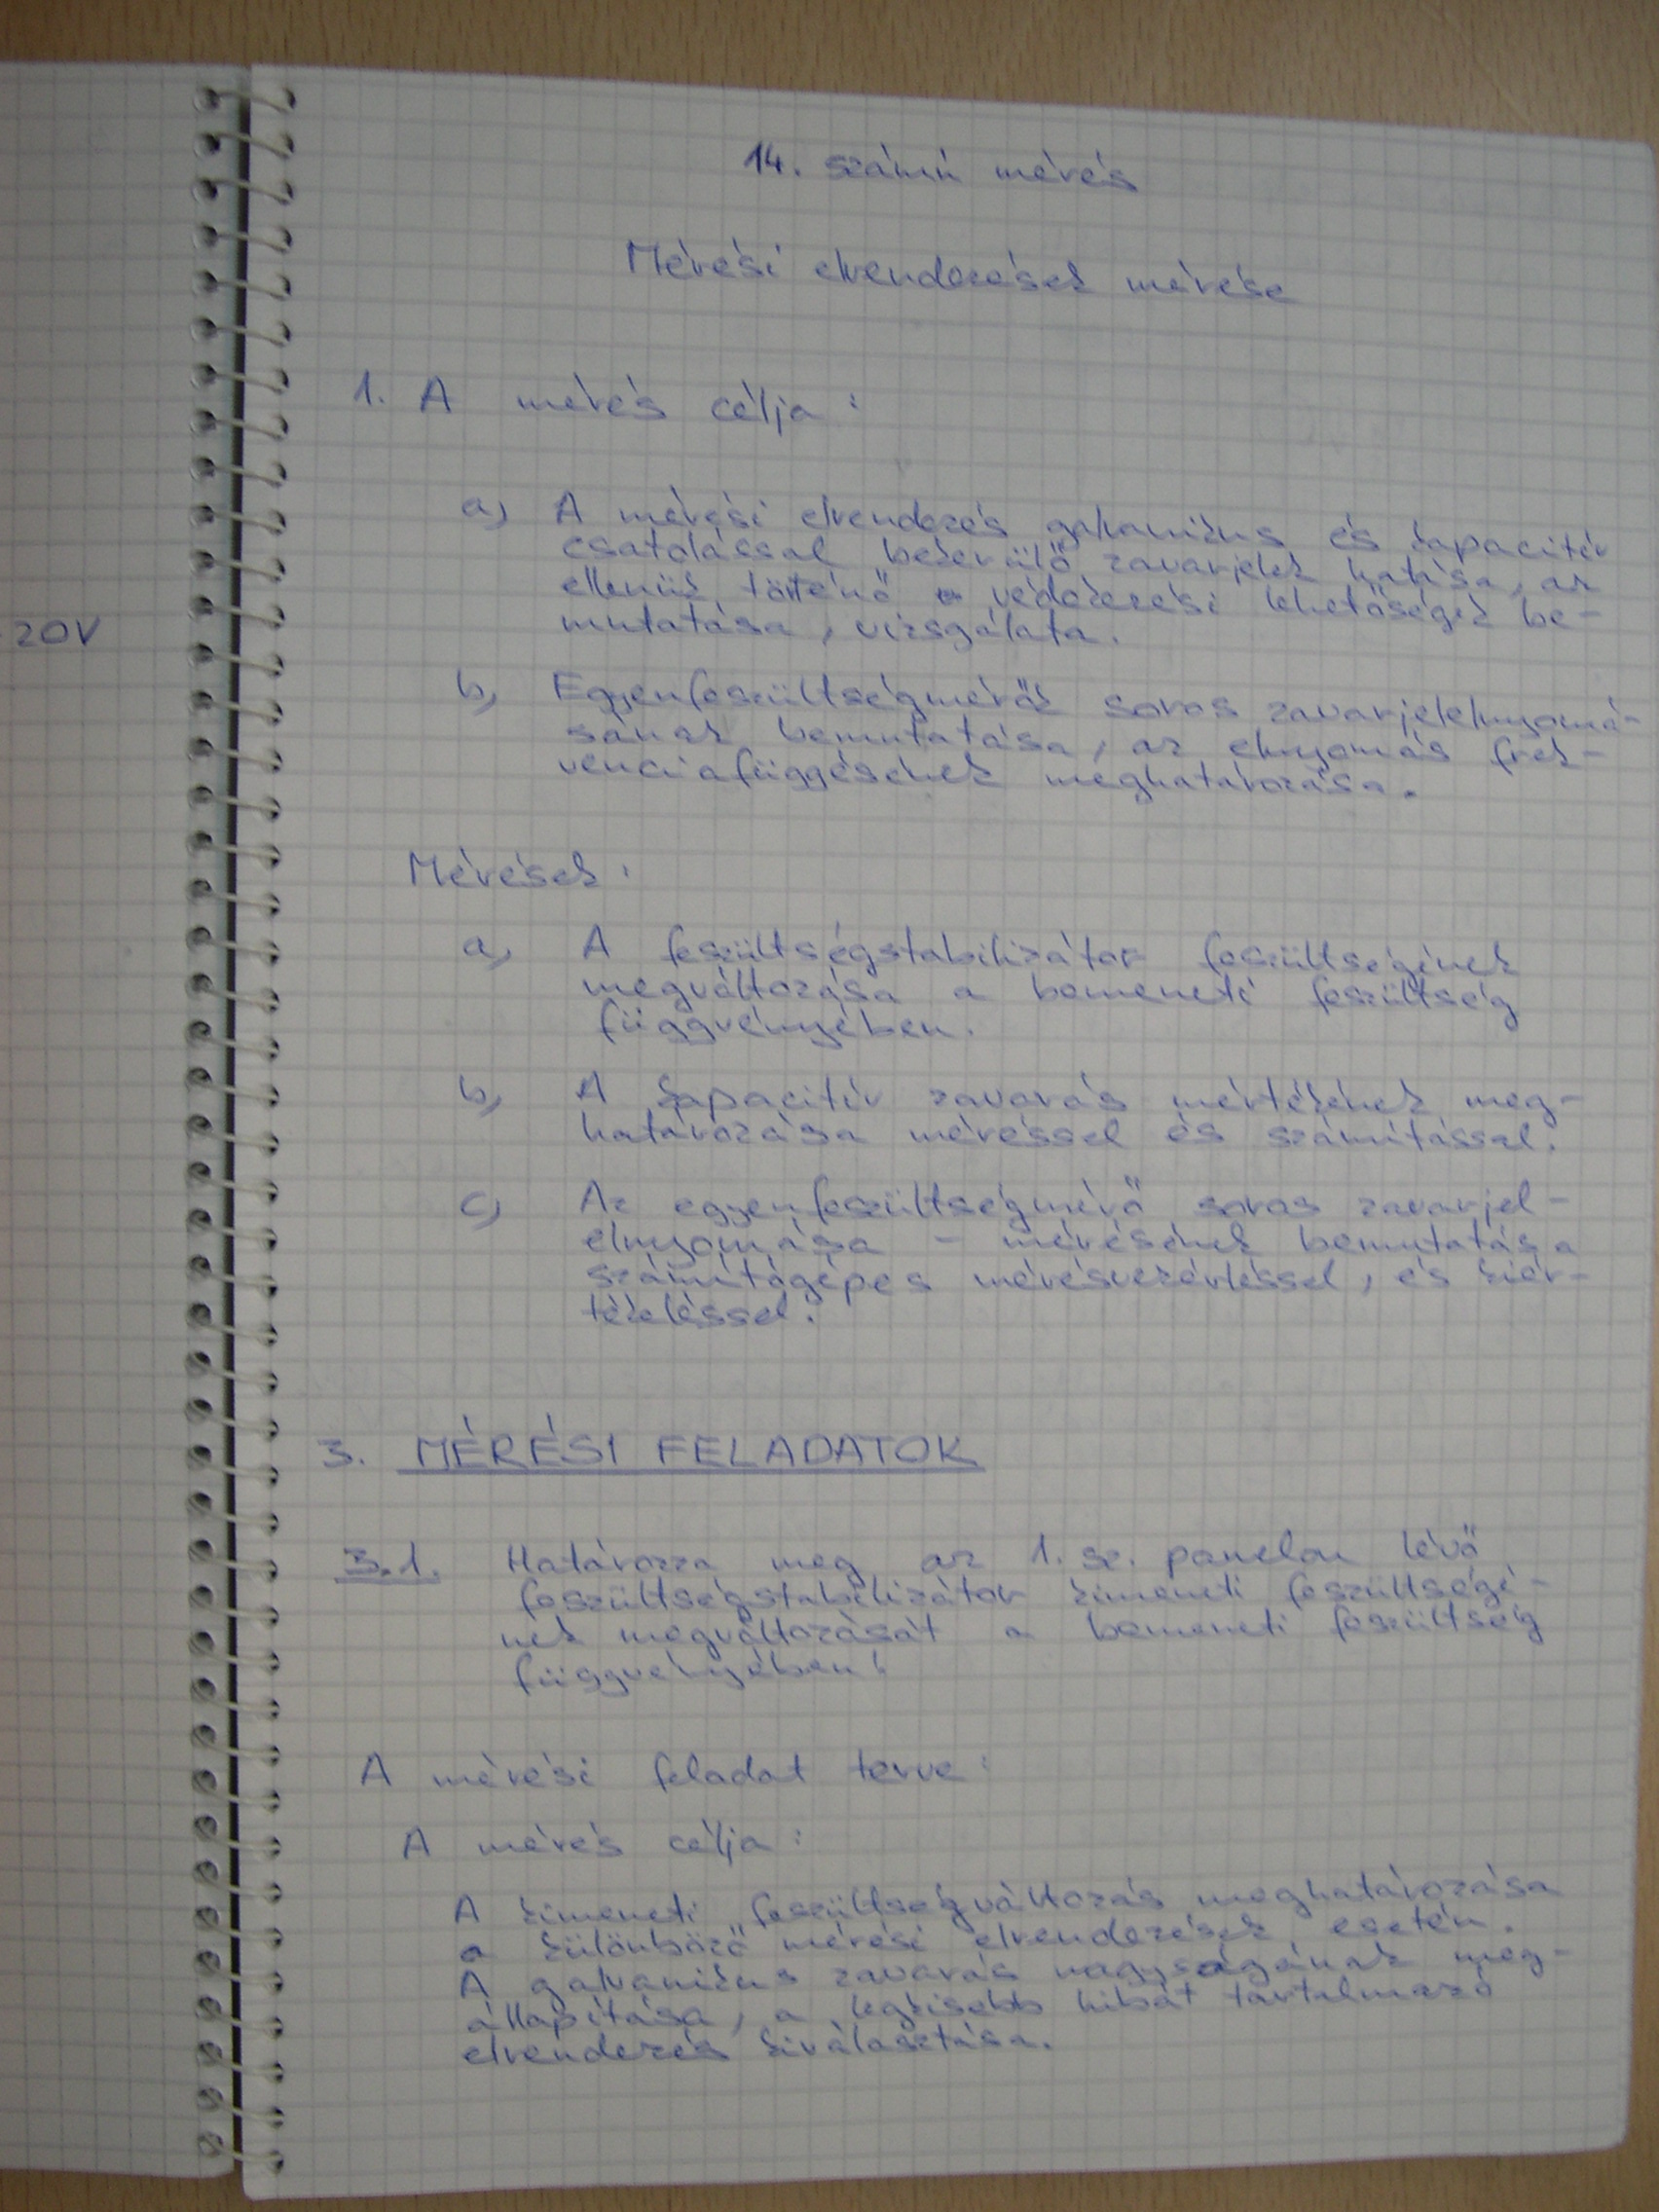 14. számú mérés
Mérési elrendezések mérése
1. A mérés célja:
a) A mérési elrendezés galvanikus és kapacitív
csatolással bekerülő zavarjelek hatása, az
ellenük történő védekezési lehetőségek be-
mutatása, vizsgálata.
20V
b) Egyenfeszültségmérők soros zavarjelelnyomá-
sának bemutatása, az elnyomás frek-
venciafüggésének meghatározása.
Mérések:
a) A feszültségstabilizátor feszültségének
megváltozása a bemeneti feszültség
függvényében.
b) A kapacitív zavarás mértékének meg-
határozása méréssel és számítással.
c) Az egyenfeszültségmérő soros zavarjel-
elnyomása - mérésének bemutatása
számítógépes mérésvezérléssel, és kiér-
tékeléssel.
3. MÉRÉSI FELADATOK
3.1. Határozza meg az 1. sz. panelon lévő
feszültségstabilizátor kimeneti feszültségé-
nek megváltozását a bemeneti feszültség
függvényében!
A mérési feladat terve:
A mérés célja:
A kimeneti feszültségváltozás meghatározása
a különböző mérési elrendezések esetén.
A galvanikus zavarás nagyságának meg-
állapítása, a legkisebb hibát tartalmazó
elrendezés kiválasztása.